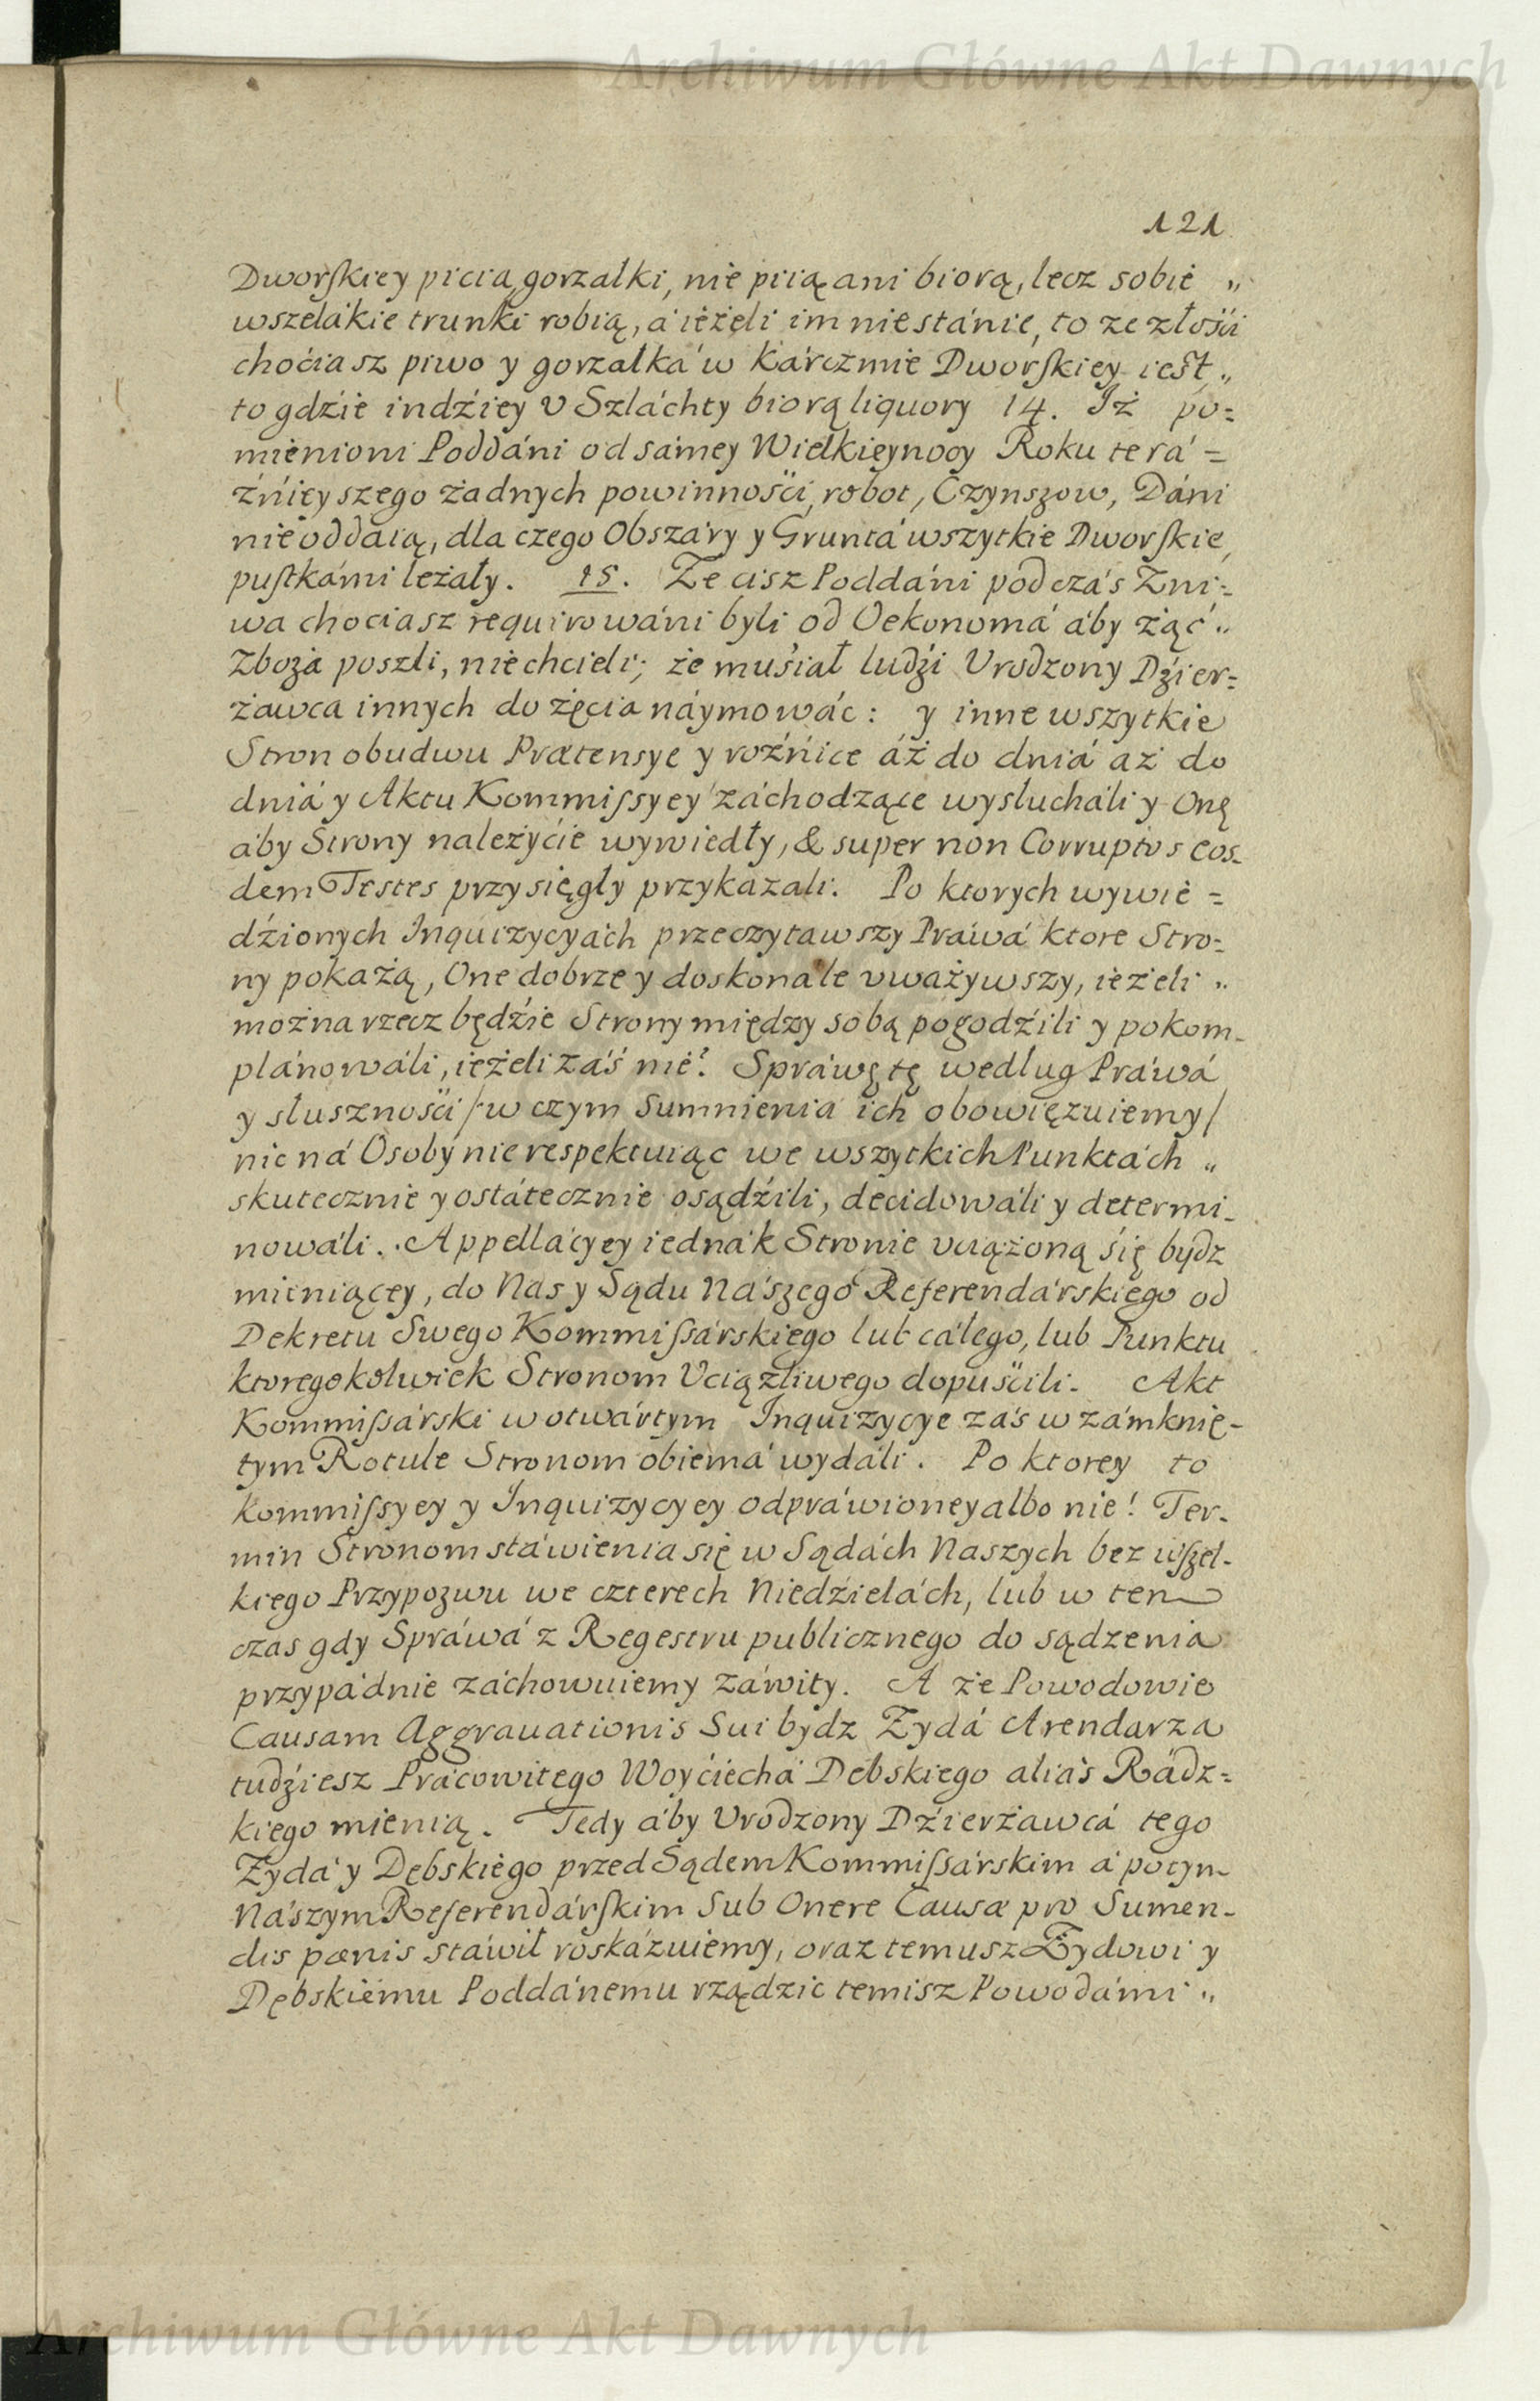 Archiwum Główne Akt Dawnych
121
Dworſkiey picia, gorzałki, nie piią ani biorą, lecz sobie „
wszelákie trunki robią, á ieżeli im nie stánie, to ze złości
choćiasz piwo y gorzałká w Kárczmie Dworſkiey iest „
to gdźie indźiey v Szláchty biorą liquory 14. Iż po=
mienioni Poddáni od sámey Wielkieynocy Roku terá=
źńieyszego żadnych powinnośći, robot, Czynszow, Dáni
nie oddaią, dla czego Obszáry y Gruntá wszytkie Dworſkie,
puſtkámi leżały. 15. Że cisz Poddáni podczás Żni=
wa chociasz requirowáni byli od Oekonomá áby żąć „
Zboża poszli, niechcieli; że muśiał ludźi Vrodzony Dźier=
żawca innych do żęcia náymowác: y inne wszytkie
Stron obudwu Prætensye y rożńice áż do dniá aż do
dniá y Aktu Kommiſsyey záchodzące wysłucháli y Onę
áby Strony należyćie wywiedły, & super non Corruptos eos-
dem Testes przysięgły przykazali. Po ktorych wywie=
dźionych Inquizycyách przeczytawszy Práwá ktore Stro=
ny pokażą, One dobrze y doskonále vważywszy, ieżeli „
można rzecz będźie Strony między sobą pogodźili y pokom-
plánowáli, ieżeli záś nie? Spráwę tę według Práwá
y słusznośći /w czym Sumnienia ich obowięzuiemy/
nic ná Osoby nie respektuiąc we wszytkich Punktách „
skutecznie y ostátecznie osądźili, decidowáli y determi-
nowáli. Appellácyey iednák Stronie vciążoną się bydz
mieniącey, do Nas y Sądu Nászego Referendárskiego od
Dekretu Swego Kommiſsárskiego lub cáłego, lub Punktu
ktoregokolwiek Stronom Vciążliwego dopuśćili. Akt
Kommiſsárski w otwártym Inquizycye záś w zámknię-
tym Rotule Stronom obiemá wydáli. Po ktorey to
Kommiſsyey y Inquizycyey odpráwioney albo nie! Ter-
min Stronom stáwienia się w Sądách Naszych bez wszel-
kiego Przypozwu we czterech Niedźielách, lub w ten
czas gdy Spráwá z Regestru publicznego do sądzenia
przypádnie záchowuiemy záwity. A że Powodowie
Causam Aggrauationis Sui bydz Żydá Arendarza
tudźiesz Prácowitego Woyćiechá Debskiego aliás Rádz=
kiego mienią. Tedy áby Vrodzony Dźierżawcá tego
Żydá y Dębskiego przed Sądem Kommiſsárskim á potym
Nászym Referendárſkim Sub Onere Causæ pro Sumen-
dis pœnis stáwił roskázuiemy, oraz temusz Żydowi y
Dębskiemu Poddánemu rządzic temisz Powodámi „
Archiwum Główne Akt Dawnych